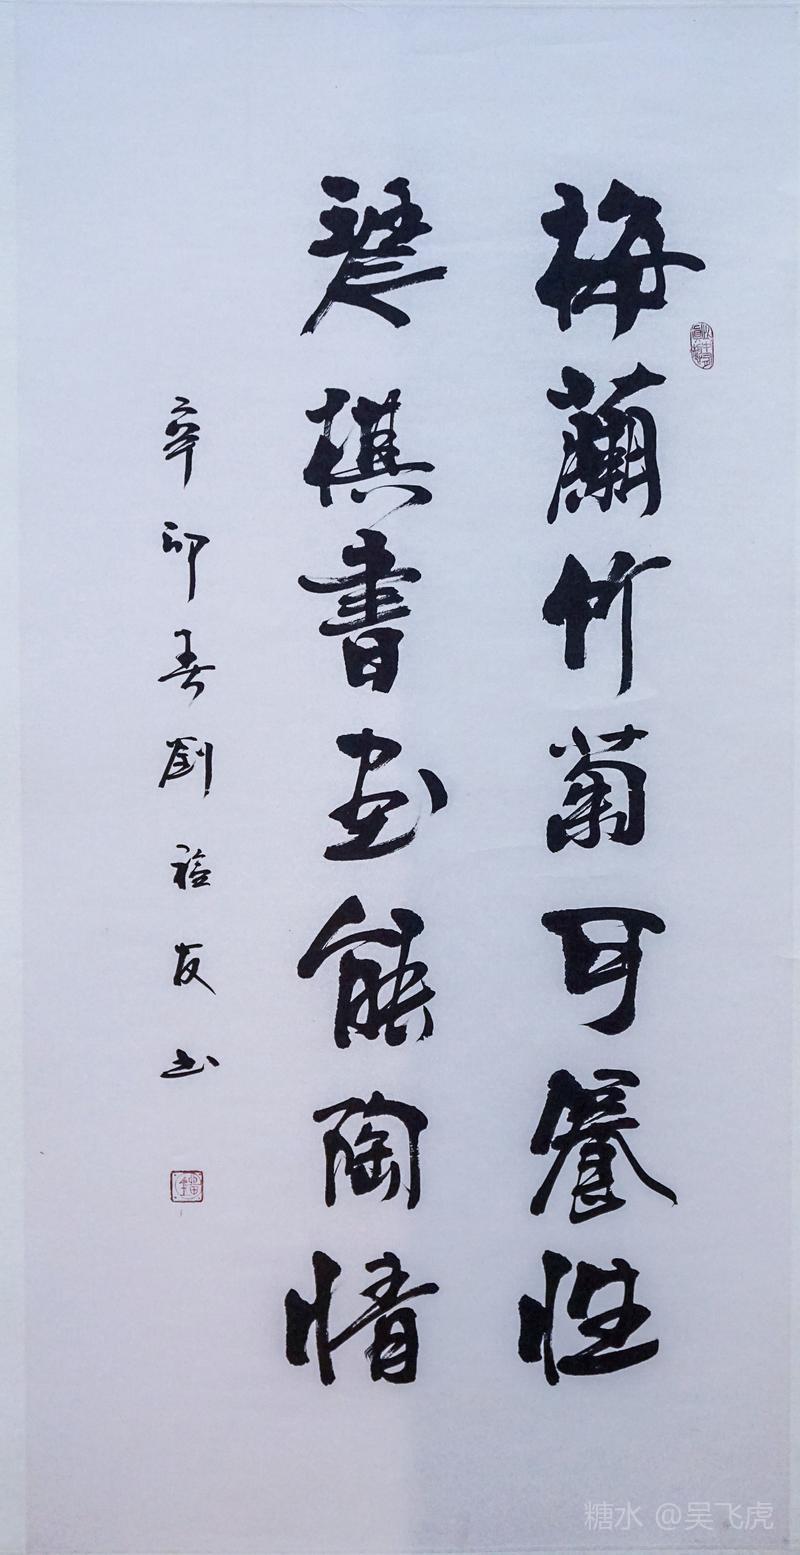 梅蘭竹菊可養性
琴棋書画能陶情
辛卯春劉福友书
糖水 @吴飞虎